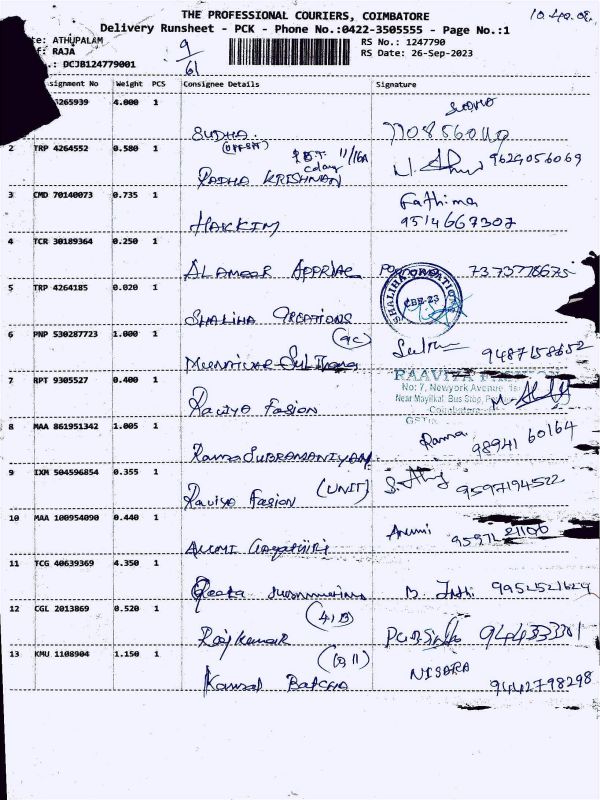 THE PROFESSIONAL COURIERS, COIMBATORE
Delivery Runsheet - PCK - Phone No.:0422-3505555 - Page No.:1
te: ATHUPALAM
f: RAJA
.: DCJB124779001
9/61
RS No.: 1247790
RS Date: 26-Sep-2023
signment No Weight PCS Consignee Details Signature
4265939 4.000 1
SUDHA.
2 TRP 4264552 0.580 1
11/16A
RADHA KRISHNAN 9629056069
3 CMD 70140073 0.735 1
HAKKIM Fathima
9514667307
4 TCR 30189364 0.250 1
ALAMEER APPRIAL 7373778675
5 TRP 4264185 0.020 1
SHALIHA CREATIONS
SHALIHA CREATIONS
CBE-23
6 PNP 530287723 1.000 1
(9C)
9487158652
7 RPT 9305527 0.400 1
Raviya Fasion
RAAVIYA
No: 7, Newyork Avenue
Near Mayilkal Bus Stop,
Coimbatore
8 MAA 861951342 1.005 1
Rama SUBRAMANIYAM. Rama
98941 60164
9 IXM 504596854 0.355 1
Raviya Fasion (UNIT) 9597194522
10 MAA 100954090 0.440 1
11 TCG 40639369 4.350 1
9952521629
12 CGL 2013869 0.520 1
(41B)
Rajkumar 944333301
13 KMU 1108904 1.150 1
(B11)
Kamal BATCHA NISARA
9442798298